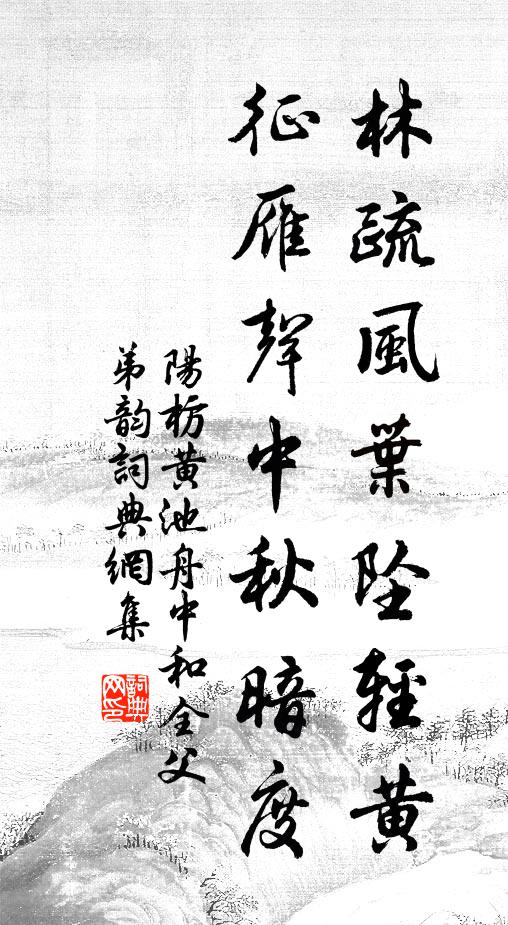 林疏風葉墜輕黃
征雁聲中秋暗度
陽枋黃池舟中和全父
弟韵詞典網集
詞典網印